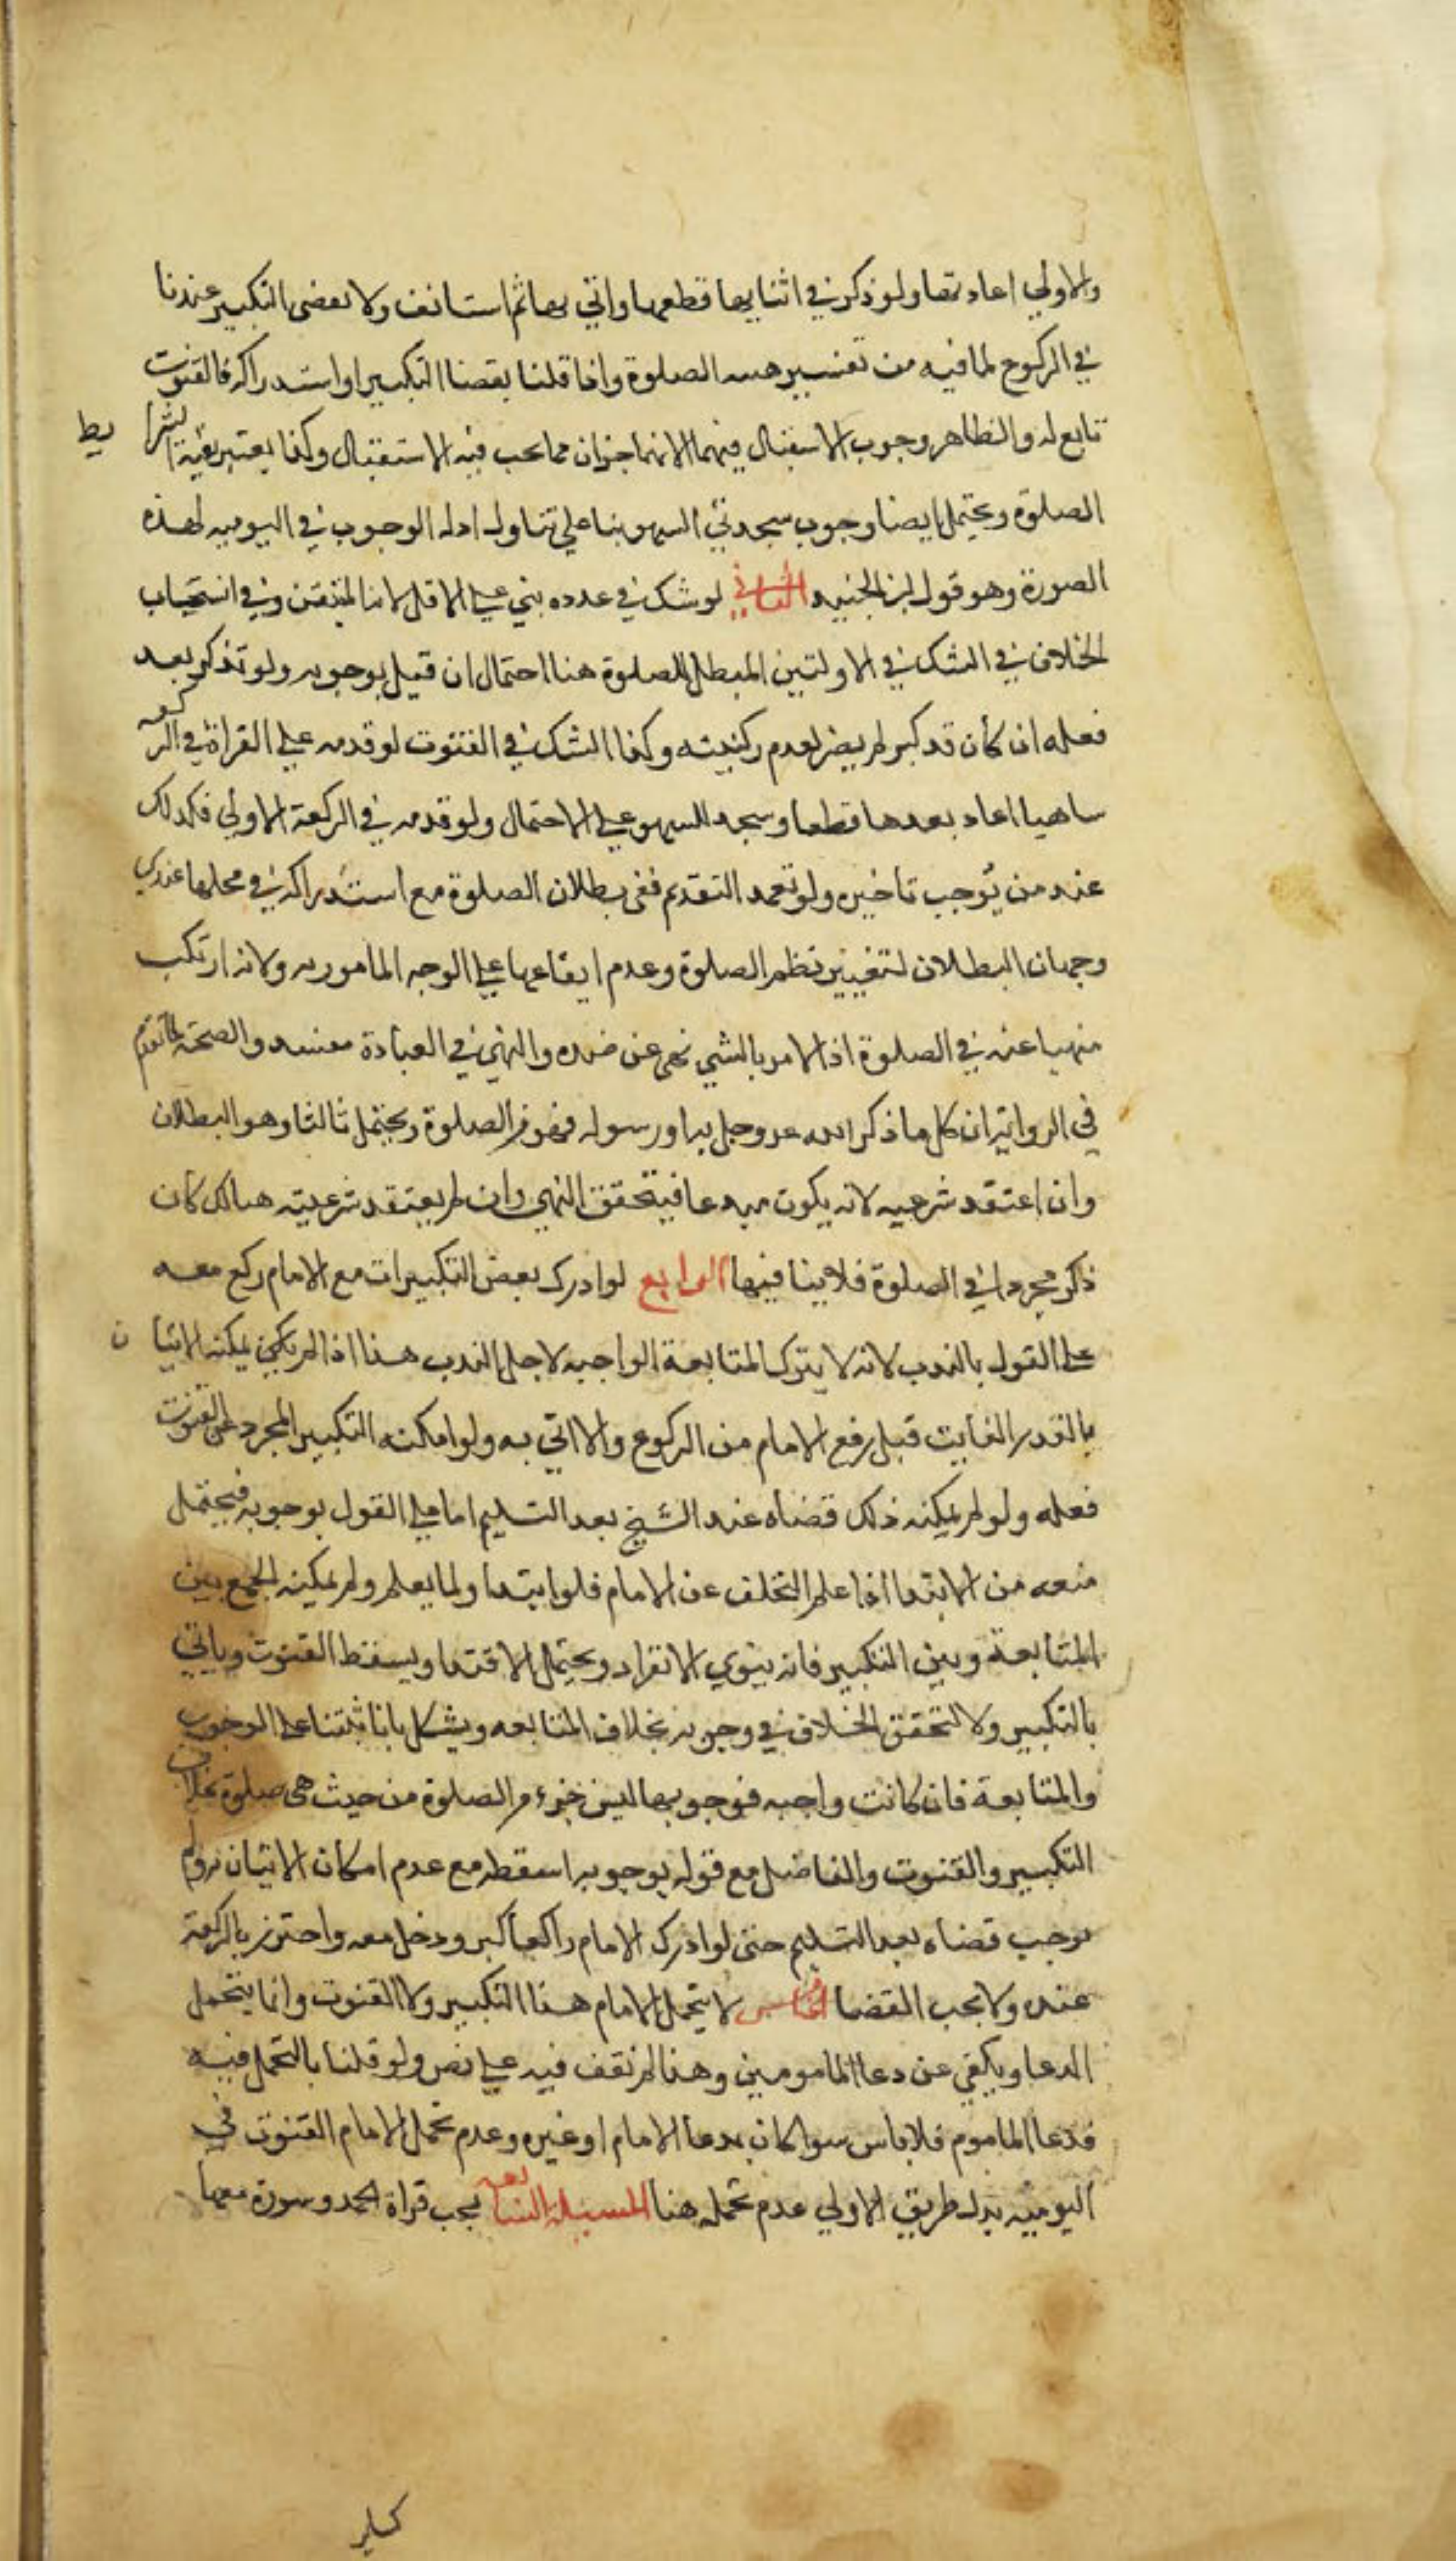 والاولي اعادتها ولو ذكر في اثنايها قطعها واتي بها ثم استانف ولا يقضى التكبير عندنا
في الركوع لما فيه من تغيير هيئة الصلوة واذا قلنا بقضا التكبير او استدراكه فالقنوت
تابع له والظاهر وجوب الاستقبال فيهما لانهما جزان مما يجب فيه الاستقبال وكذا يعتبر بقية الشرايط
الصلوة ويحتمل ايضا وجوب سجدتي السهو بنا علي تناول ادله الوجوب في اليوميه لهذه
الصورة وهو قول ابن الجنيد الثاني لو شك في عدده بني علي الاقل لانه المتيقن وفي انسحاب
الخلاف في الشك في الاولتين المبطل للصلوة هنا احتمال ان قيل بوجوبه ولو تذكر بعد
فعله ان كان قد كبر لم يضر لعدم ركنيته وكذا الشك في القنوت لو قدمه علي القراة في الركعه
ساهيا اعاد بعدها قطعا وسجد للسهو علي الاحتمال ولو قدمه في الركعة الاولي فكذلك
عند من يُوجب تاخيره ولو تعمد التقديم ففي بطلان الصلوة مع استدراكه في محلها عندي
وجهان البطلان لتغيير نظم الصلوة وعدم ايقاعها علي الوجه المامور به ولانه ارتكب
منهيا عنه في الصلوة اذ الامر بالشي نهي عن ضده والنهي في العبادة مفسد والصحة لما تقدم
في الرواية ان كل ما ذكر الله عز وجل به او رسوله فهو من الصلوة ويحتمل ثالثا وهو البطلان
وان اعتقد شرعيه لانه يكون مبدعا فيتحقق النهي وان لم يعتقد شرعيته هنالك كان
ذكر مجردا في الصلوة فلا ينافيها الرابع لو ادرك بعض التكبيرات مع الامام ركع معه
علي القول بالندب لانه لا يترك المتابعة الواجبه لاجل الندب هذا اذا لم يكن يمكنه الاتيان
بالقدر الفايت قبل رفع الامام من الركوع والا اتي به ولو امكنه التكبير المجرد عن القنوت
فعله ولو لم يمكنه ذلك قضاه عند الشيخ بعد التسليم اما علي القول بوجوبه فيحتمل
منعه من الابتدا اذا علم التخلف عن الامام فلو ابتدا ولما يعلم ولم يمكنه الجمع بين
المتابعة وبين التكبير فانه ينوي الانفراد ويحتمل الاقتدا ويسقط القنوت وياتي
بالتكبير ولا لتحقق الخلاف في وجوبه بخلاف المتابعه ويشكل بانا بنينا علي الوجوب
والمتابعة فان كانت واجبه فوجوبها ليس جزء من الصلوة من حيث هي صلوة بخلاف
التكبير والقنوت والفاضل مع قوله بوجوبه اسقطه مع عدم امكان الاتيان به ولم
يوجب قضاه بعد التسليم حتى لو ادرك الامام راكعا كبر ودخل معه واجتزي بالركعة
عنده ولا يجب القضا الخامس لا يتحمل الامام هذا التكبير ولا القنوت وانما يتحمل
الدعا ويكفي عن دعا المامومين وهذا لم نقف فيه علي نص ولو قلنا بالتحمل فيه
فدعا الماموم فلا باس سوا كان بدعا الامام او غيره وعدم تحمل الامام القنوت في
اليوميه يدل بطريق الاولي عدم تحمله هنا المسئلة السابعه يجب قراة الحمد وسورة معها